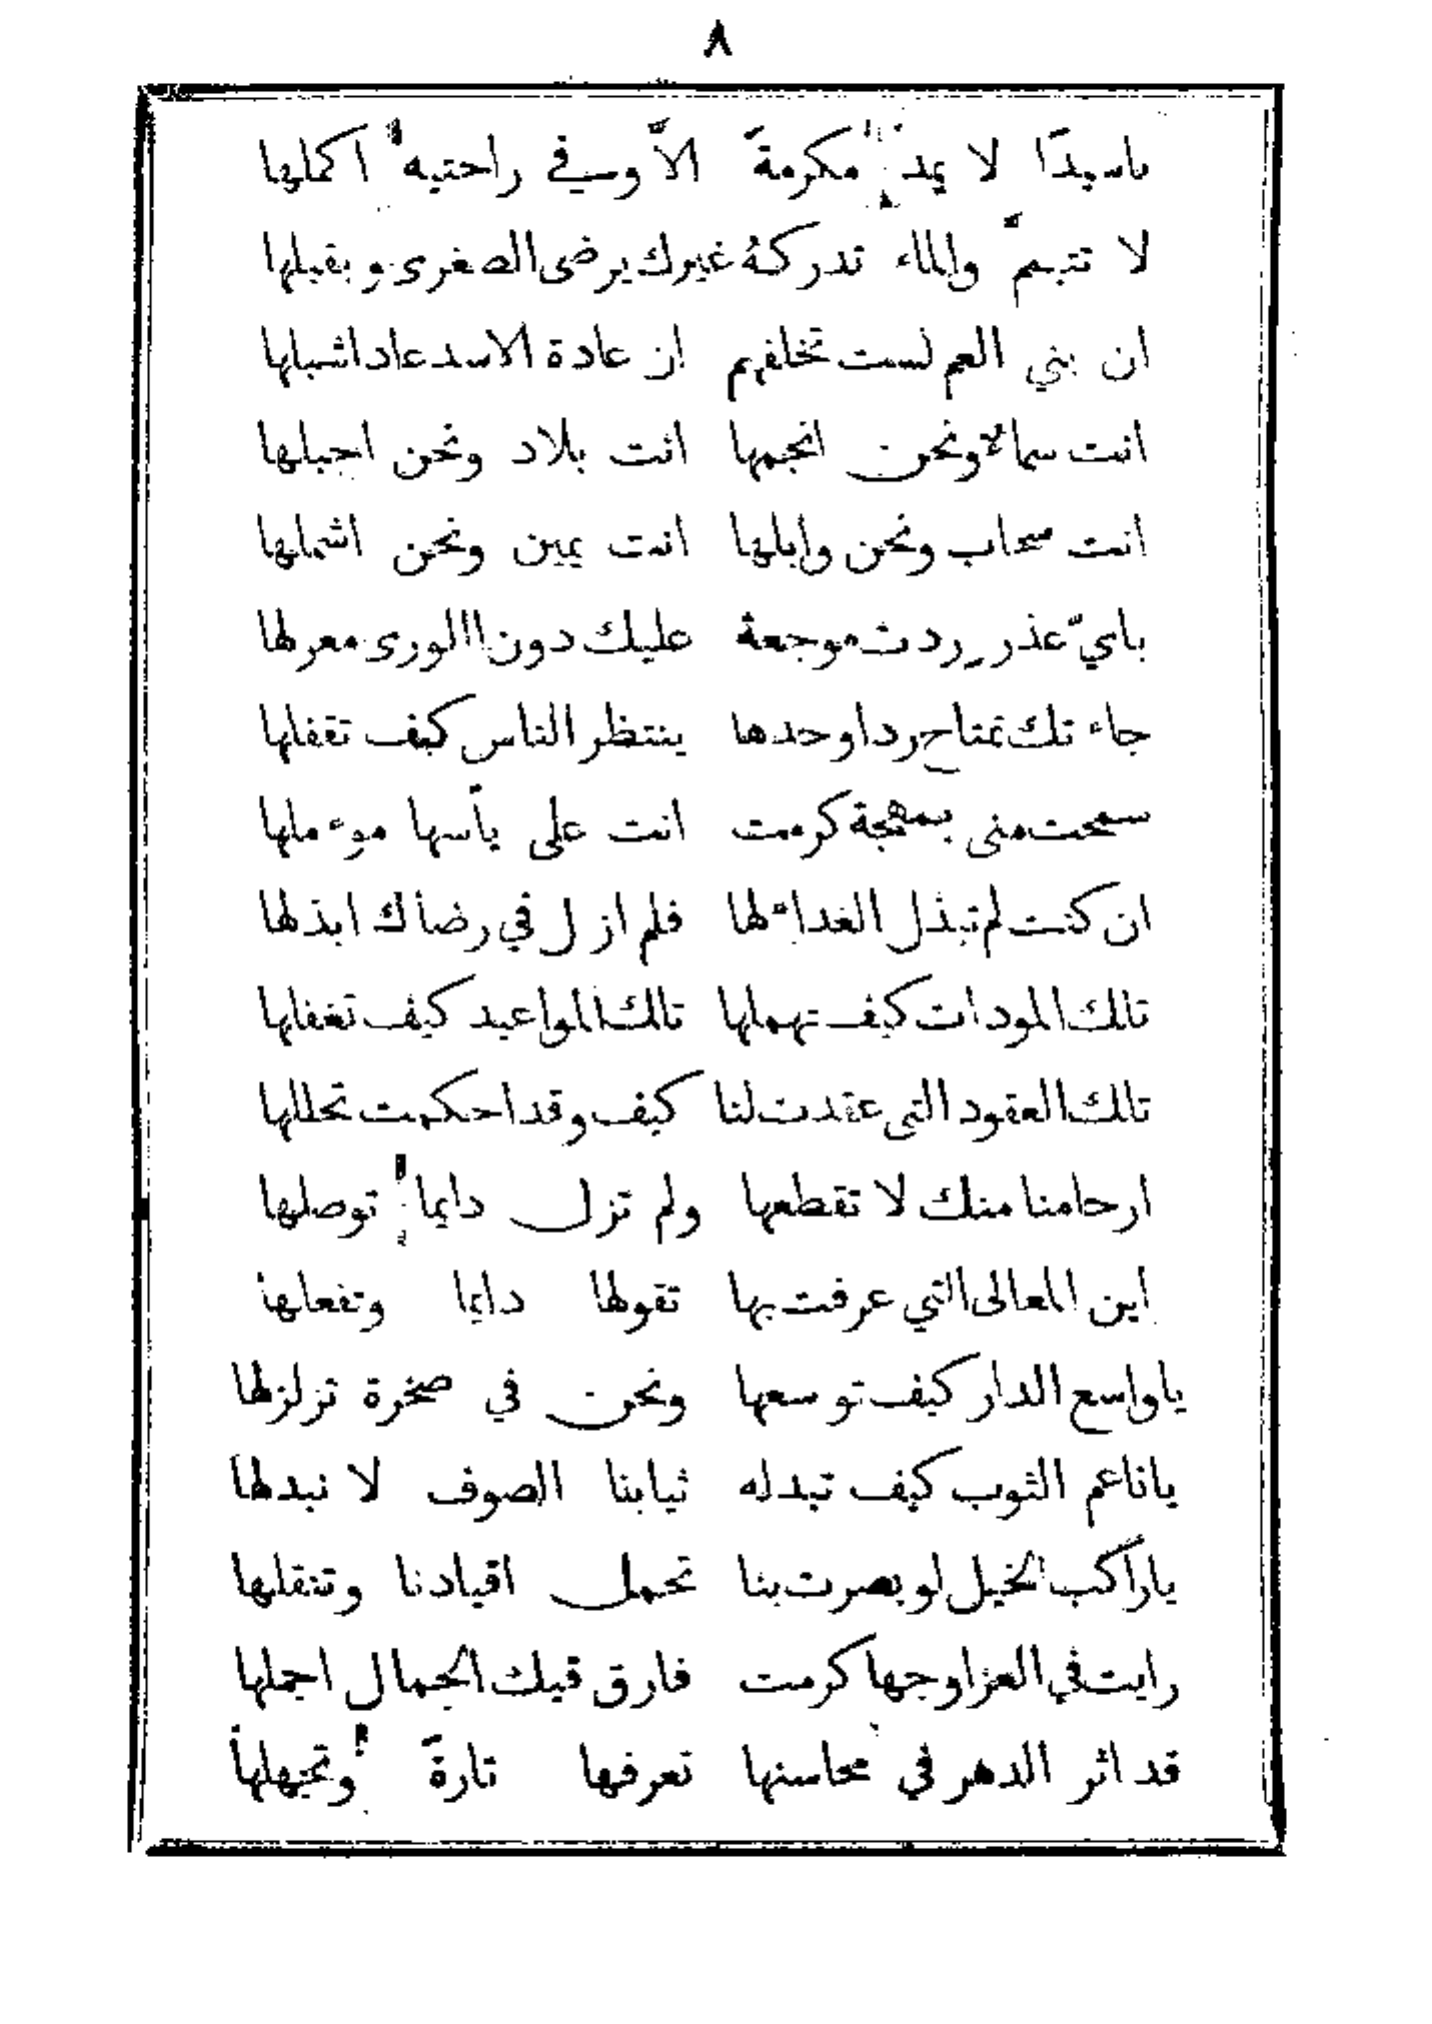 ٨
ياسيدًا لا يمد مكرمةً الاَّ وسيفي راحتيه اكملها
لا تتيمَّ والماء تدركهُ غيرك يرضى الصغرى ويقبلها
ان بني العم لست تخلفهم ان عادة الاسد عاد اشبلها
انت سماءٌ ونحن انجمها انت بلاد ونحن اجبلها
انت سحاب ونحن وابلها انت يمين ونحن اشملها
بايّ عذر رددت موجعة عليك دون الورى معولها
جاءتك تمتاح ردا وحدها ينتظر الناس كيف تقفلها
سمحت منى بمهجة كرمت انت على يأسها موءملها
ان كنت لم تبذل الفداء لها فلم ازل في رضاك ابذلها
تلك المودات كيف تهملها تلك المواعيد كيف تغفلها
تلك العقود التى عقدت لنا كيف وقد احكمت تحللها
ارحامنا منك لا تقطعها ولم تزل دايما توصلها
اين المعالى التي عرفت بها تقولها دايما وتفعلها
ياواسع الدار كيف توسعها ونحن في صخرة تزلزلها
ياناعم الثوب كيف تبدله ثيابنا الصوف لا نبدلها
ياراكب الخيل لو بصرت بنا تحمل اقيادنا وتنقلها
رايت في العزاوجها كرمت فارق فيك الجمال اجملها
قد اثر الدهر في محاسنها تعرفها تارةً وتجهلها